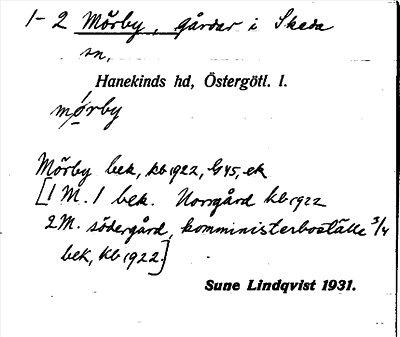 1-2 Mörby, gårdar i Skeda
sn,
Hanekinds hd, Östergötl. l.
mørby
Mörby bek, kb 1922, G 45, ek
[1 M. 1 bek. Norrgård kb 1922
2 M. södergård, komministerboställe 3/4
bek, kb 1922.]
Sune Lindqvist 1931.